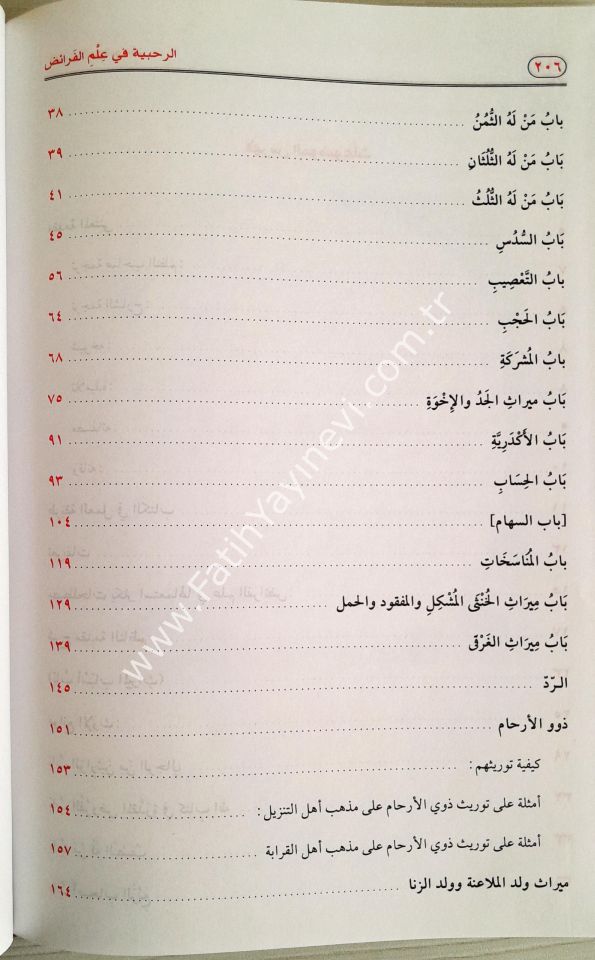 ٢٠٦ الرحبية في عِلْمِ الفَرائض
بابُ مَنْ لَهُ الثُّمُنُ ٣٨
بَابُ مَنْ لَهُ الثُّلُثَانِ ٣٩
بَابُ مَنْ لَهُ الثُّلُثُ ٤١
بَابُ السُّدُسِ ٤٥
بابُ التَّعْصِيبِ ٥٦
بَابُ الحَجْبِ ٦٤
بابُ المُشرَكَةِ ٦٨
بَابُ ميراثِ الجَدِّ والإِخْوَةِ ٧٥
بَابُ الأَكْدَرِيَّةِ ٩١
بَابُ الحِسَابِ ٩٣
[باب السهام] ١٠٤
بابُ المُنَاسَخَاتِ ١١٩
بَابُ مِيرَاثِ الخُنْثَى المُشْكِلِ والمفقود والحمل ١٢٩
بَابُ مِيرَاثِ الغَرْقَى ١٣٩
الـردّ ١٤٥
ذوو الأرحام ١٥١
كيفية توريثهم: ١٥٣
أمثلة على توريث ذوي الأرحام على مذهب أهل التنزيل: ١٥٤
أمثلة على توريث ذوي الأرحام على مذهب أهل القرابة ١٥٧
ميراث ولد الملاعنة وولد الزنا ١٦٤
www.FatihYayinevi.com.tr